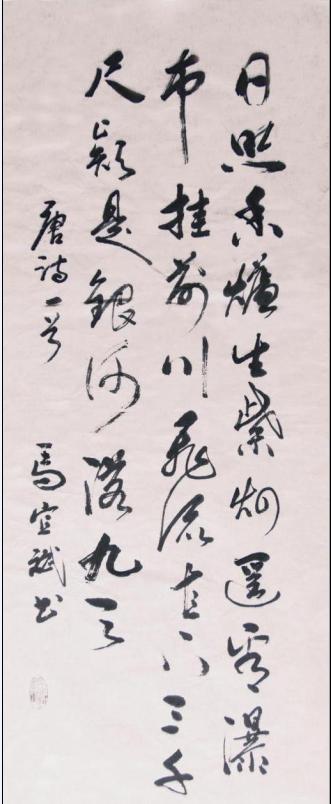 日照香爐生紫烟遥看瀑
布挂前川飛流直下三千
尺疑是銀河落九天
唐詩一首 馬宣斌书